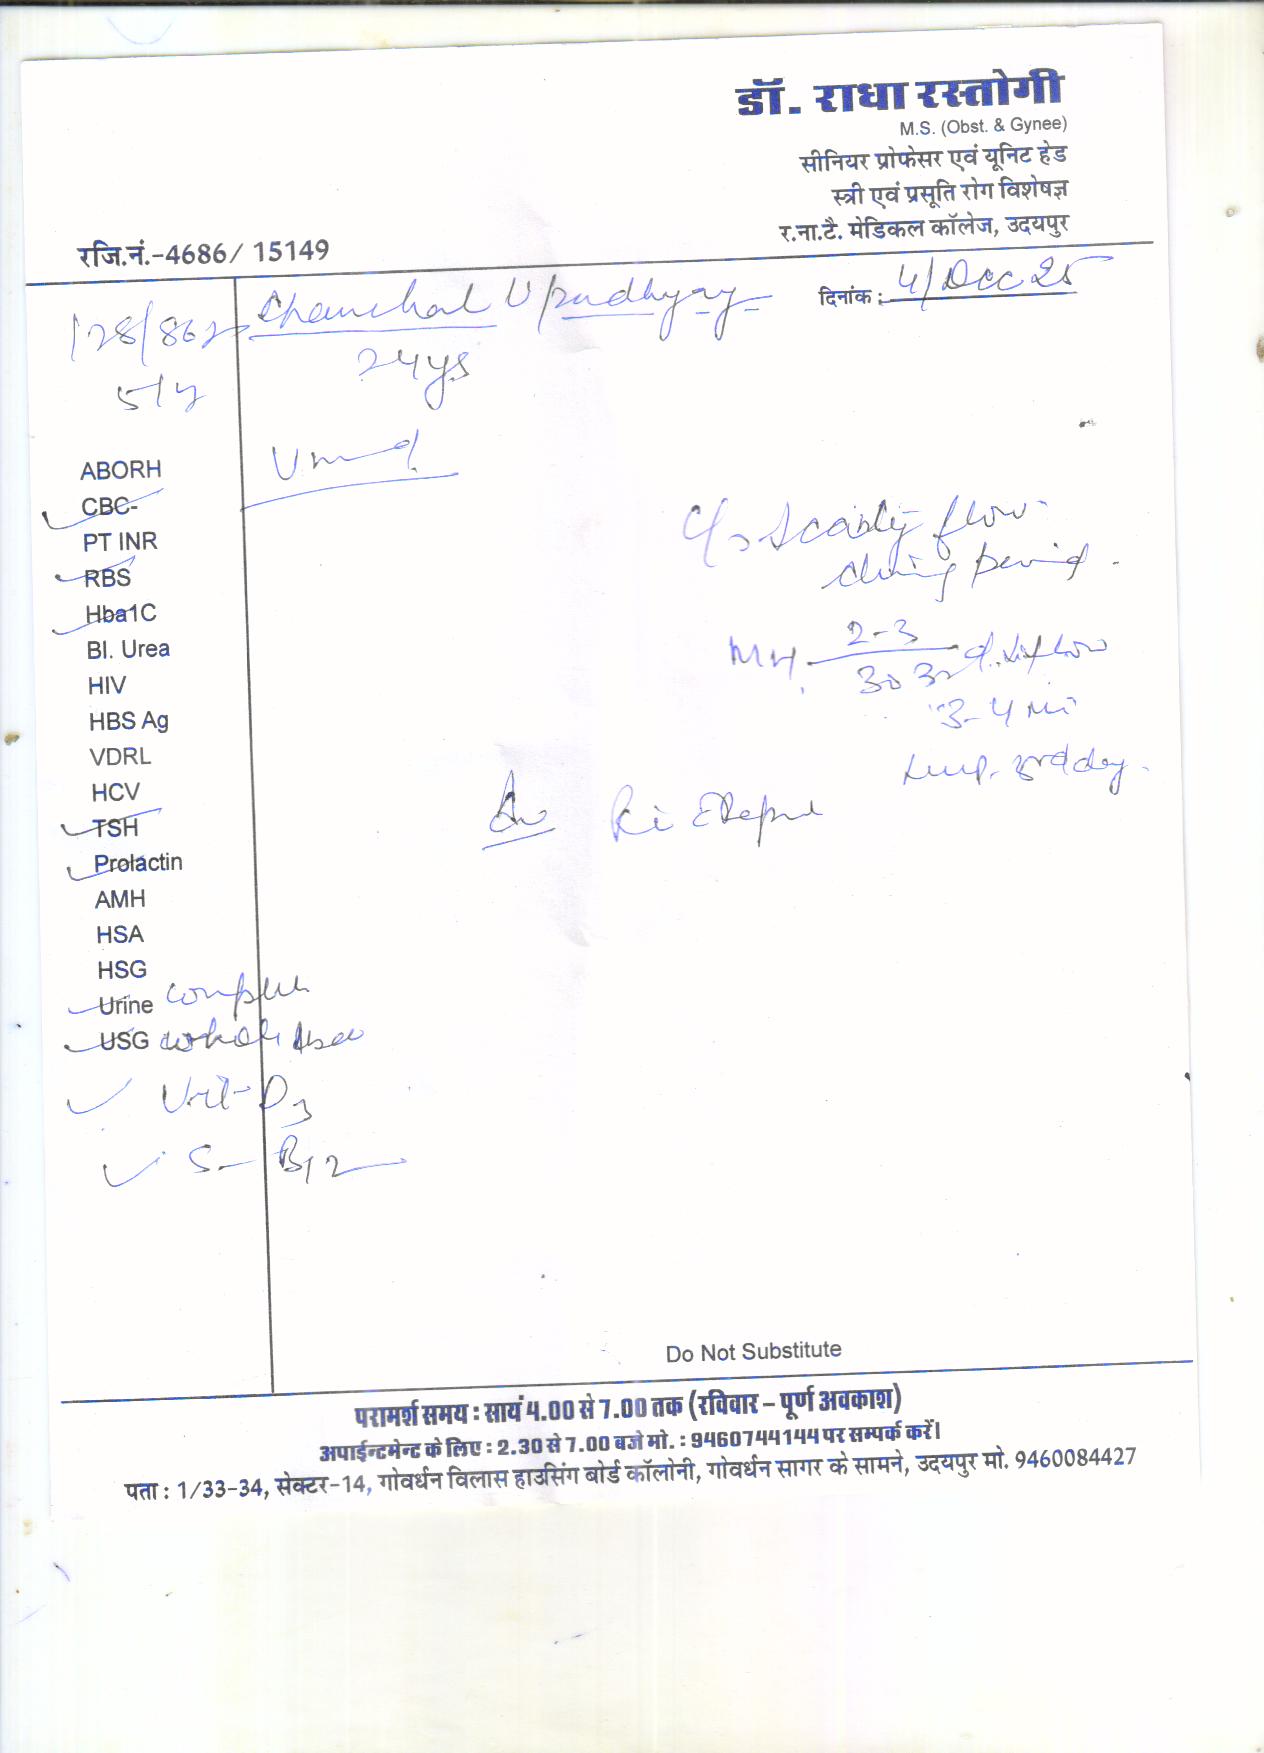 डॉ. राधा रस्तोगी
M.S. (Obst. & Gynee)
सीनियर प्रोफेसर एवं यूनिट हेड
स्त्री एवं प्रसूति रोग विशेषज्ञ
र.ना.टै. मेडिकल कॉलेज, उदयपुर
रजि.नं.-4686/ 15149
दिनांक : 4/Dec 25
128/86
Chanchal Upadhyay
24ys
Unmd.
ABORH
CBC-
PT INR
RBS
Hba1C
Bl. Urea
HIV
HBS Ag
VDRL
HCV
TSH
Prolactin
AMH
HSA
HSG
Urine complete
USG whole Abd
Vit-D3
S-B12
C/o Scanty flow
during period.
MH. 2-3
30 32 d. flow
3-4
Lmp. 3rd day.
Adv
Do Not Substitute
परामर्श समय : सायं 4.00 से 7.00 तक (रविवार – पूर्ण अवकाश)
अपाईन्टमेन्ट के लिए : 2.30 से 7.00 बजे मो. : 9460744144 पर सम्पर्क करें।
पता : 1/33-34, सेक्टर-14, गोवर्धन विलास हाउसिंग बोर्ड कॉलोनी, गोवर्धन सागर के सामने, उदयपुर मो. 9460084427